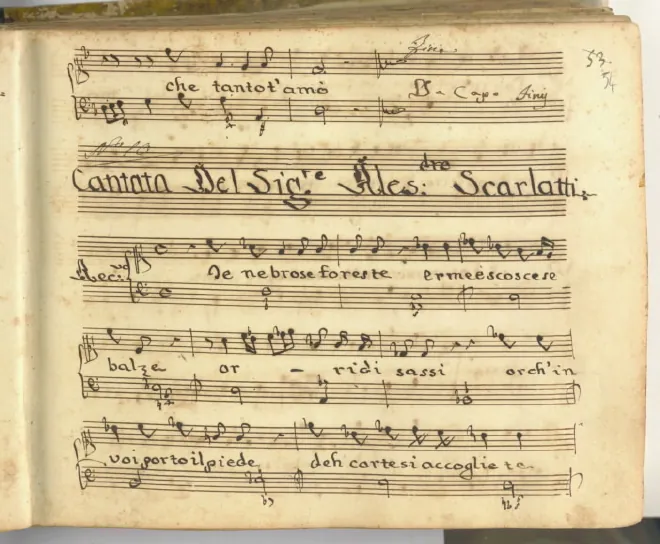 Finis
53
54
che tantot'amò
Da Capo Finis
N.º 13
Cantata Del Sig.re Ales:dro Scarlatti
Rec:vo
Te nebrose foreste erme è scoscese
balze or - ridi sassi or ch'in
voi porto il piede deh cortesi accogliete